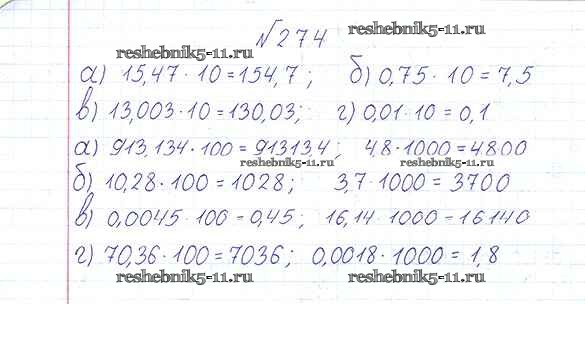 №274
reshebnik5-11.ru reshebnik5-11.ru
а) 15,47·10=154,7; б) 0,75·10=7,5
в) 13,003·10=130,03; г) 0,01·10=0,1
а) 913,134·100=91313,4; 4,8·1000=4800
reshebnik5-11.ru reshebnik5-11.ru
б) 10,28·100=1028; 3,7·1000=3700
в) 0,0045·100=0,45; 16,14·1000=16140
г) 70,36·100=7036; 0,0018·1000=1,8
reshebnik5-11.ru reshebnik5-11.ru